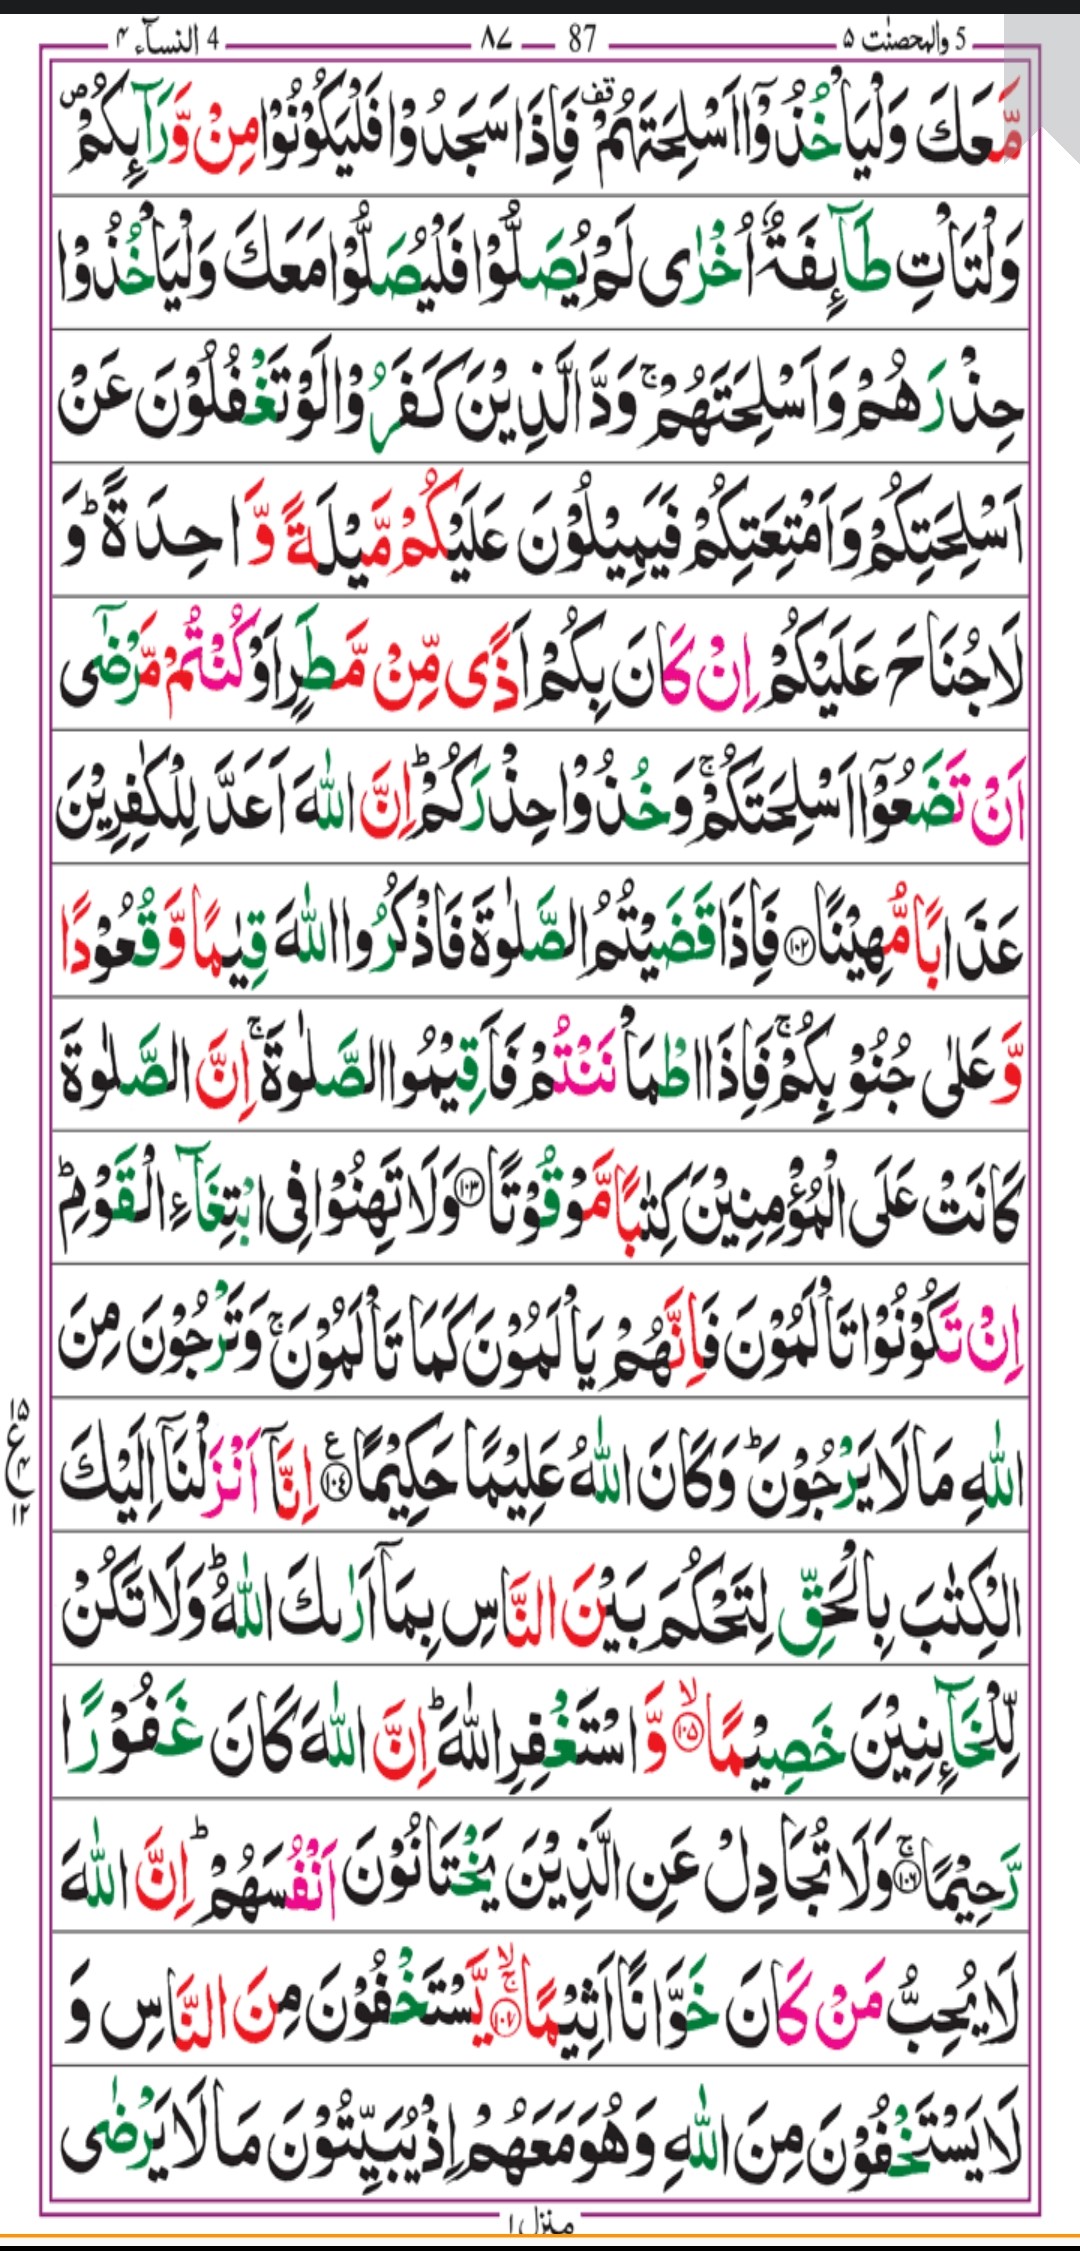 5 والمحصنٰت ٥ 87 ٨٧ 4 النسآء ٤
مَّعَكَ وَلْيَاْخُذُوْۤا اَسْلِحَتَهُمْ ۫ فَاِذَا سَجَدُوْا فَلْيَكُوْنُوْا مِنْ وَّرَآىِٕكُمْ ۪
وَلْتَاْتِ طَآىِٕفَةٌ اُخْرٰى لَمْ يُصَلُّوْا فَلْيُصَلُّوْا مَعَكَ وَلْيَاْخُذُوْا
حِذْرَهُمْ وَاَسْلِحَتَهُمْ ۚ وَدَّ الَّذِيْنَ كَفَرُوْا لَوْ تَغْفُلُوْنَ عَنْ
اَسْلِحَتِكُمْ وَاَمْتِعَتِكُمْ فَيَمِيْلُوْنَ عَلَيْكُمْ مَّيْلَةً وَّاحِدَةً ؕ وَ
لَا جُنَاحَ عَلَيْكُمْ اِنْ كَانَ بِكُمْ اَذًى مِّنْ مَّطَرٍ اَوْ كُنْتُمْ مَّرْضٰۤى
اَنْ تَضَعُوْۤا اَسْلِحَتَكُمْ ۚ وَخُذُوْا حِذْرَكُمْ ؕ اِنَّ اللّٰهَ اَعَدَّ لِلْكٰفِرِيْنَ
عَذَابًا مُّهِيْنًا ۝١٠٢ فَاِذَا قَضَيْتُمُ الصَّلٰوةَ فَاذْكُرُوا اللّٰهَ قِيٰمًا وَّقُعُوْدًا
وَّعَلٰى جُنُوْبِكُمْ ۚ فَاِذَا اطْمَاْنَنْتُمْ فَاَقِيْمُوا الصَّلٰوةَ ۚ اِنَّ الصَّلٰوةَ
كَانَتْ عَلَى الْمُؤْمِنِيْنَ كِتٰبًا مَّوْقُوْتًا ۝١٠٣ وَلَا تَهِنُوْا فِى ابْتِغَآءِ الْقَوْمِ ؕ
اِنْ تَكُوْنُوْا تَاْلَمُوْنَ فَاِنَّهُمْ يَاْلَمُوْنَ كَمَا تَاْلَمُوْنَ ۚ وَتَرْجُوْنَ مِنَ
اللّٰهِ مَا لَا يَرْجُوْنَ ؕ وَكَانَ اللّٰهُ عَلِيْمًا حَكِيْمًا ۝١٠٤ ع اِنَّاۤ اَنْزَلْنَاۤ اِلَيْكَ
١٥
ع ٤
١٢
الْكِتٰبَ بِالْحَقِّ لِتَحْكُمَ بَيْنَ النَّاسِ بِمَاۤ اَرٰىكَ اللّٰهُ ؕ وَلَا تَكُنْ
لِّلْخَآىِٕنِيْنَ خَصِيْمًا ۝١٠٥ ۙ وَّاسْتَغْفِرِ اللّٰهَ ؕ اِنَّ اللّٰهَ كَانَ غَفُوْرًا
رَّحِيْمًا ۝١٠٦ ۚ وَلَا تُجَادِلْ عَنِ الَّذِيْنَ يَخْتَانُوْنَ اَنْفُسَهُمْ ؕ اِنَّ اللّٰهَ
لَا يُحِبُّ مَنْ كَانَ خَوَّانًا اَثِيْمًا ۝١٠٧ ۚۙ يَّسْتَخْفُوْنَ مِنَ النَّاسِ وَ
لَا يَسْتَخْفُوْنَ مِنَ اللّٰهِ وَهُوَ مَعَهُمْ اِذْ يُبَيِّتُوْنَ مَا لَا يَرْضٰى
منزل ١